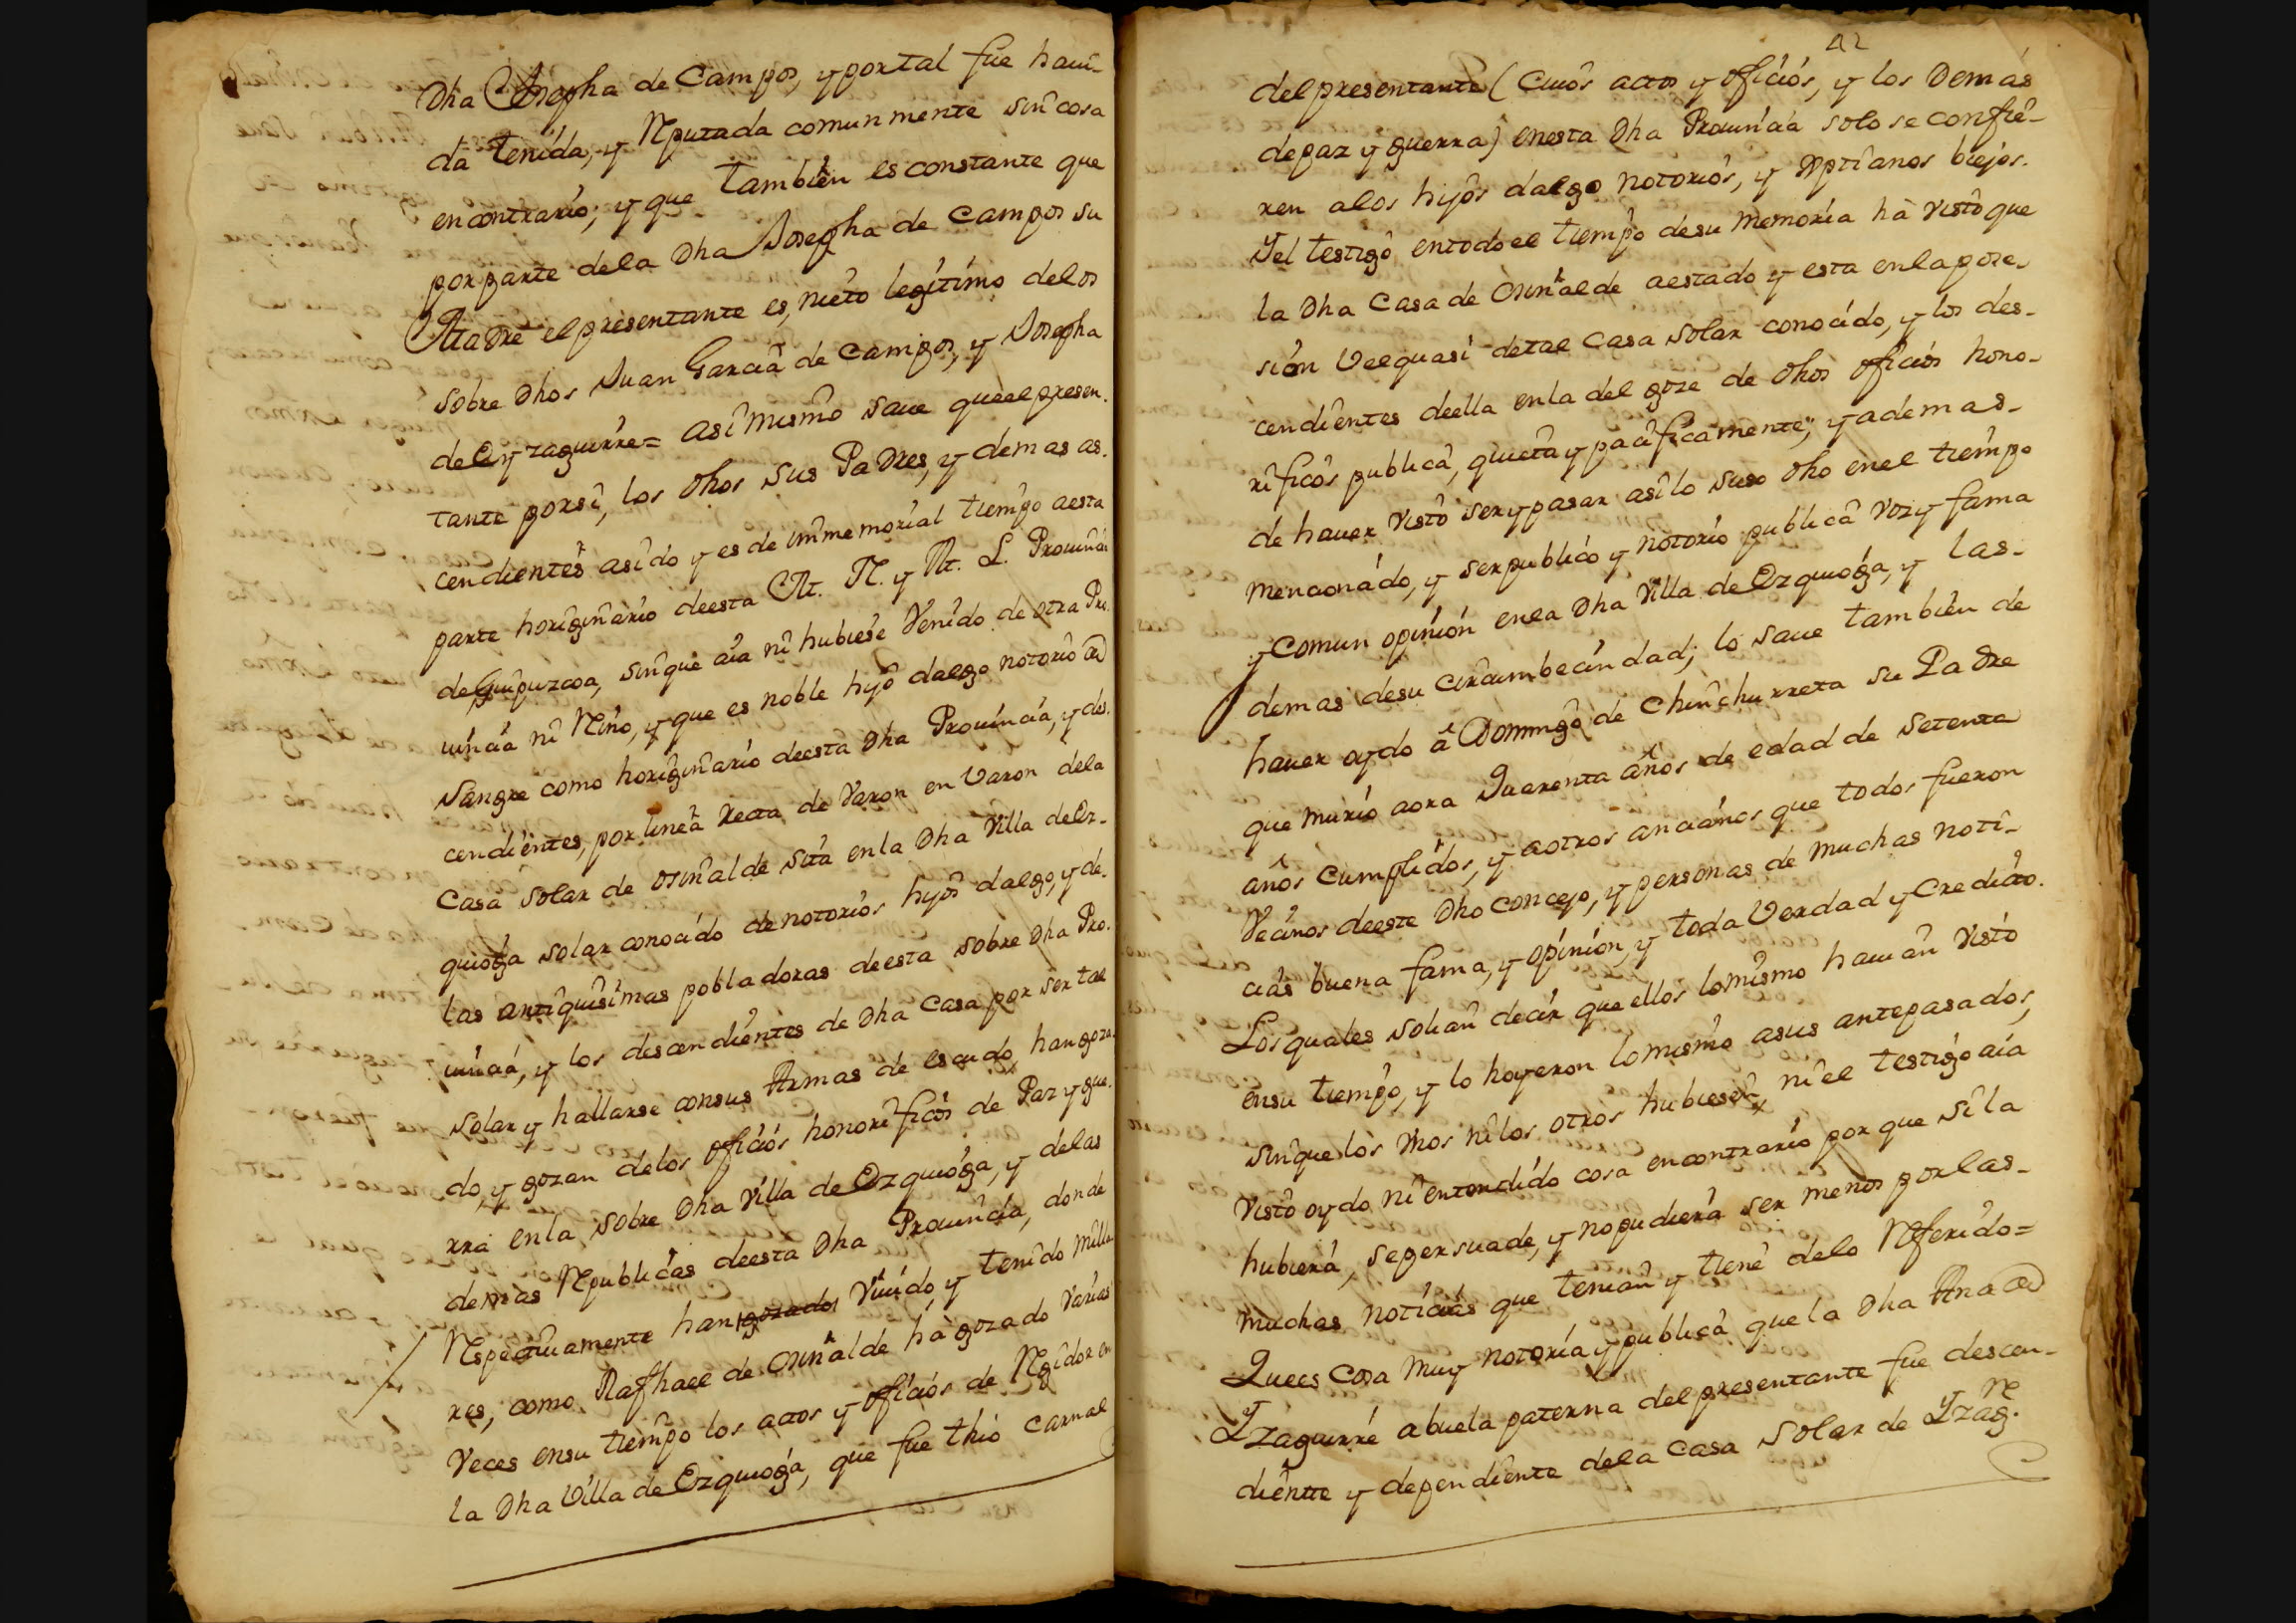 Dha Josepha de Campos, y por tal fue haui-
da tenida, y Reputada comunmente sin cosa
en contrario; y que tambien es constante que
por parte de la Dha Josepha de Campos su
Madre el presentante es, nieto legitimo de los
sobre Dhos Juan Garcia de Campos, y Josepha
de Oyzaguirre = asi mismo saue que el presen-
tante por si, los dhos sus Padres, y demas as-
cendientes a sido y es de immemorial tiempo a esta
parte horiginario de esta M. N. y M. L. Prouincia
de Guipuzcoa, sin que aia ni hubiese Venido de otra Pro-
uincia ni Reino, y que es noble hijo dalgo notorio de
Sangre como horiginario de esta Dha Prouincia, y des-
cendientes, por linea Recta de Varon en Varon de la
Casa Solar de Osinalde sita en la Dha Villa de Ez-
quioga solar conocido de notorios hijos dalgo, y de
las antiquisimas pobladoras de esta sobre Dha Pro-
uincia, y los descendientes de Dha Casa por ser tal
solar y hallarse con sus Armas de escudo, han goza-
do, y gozan de los oficios honorificos de Paz y gue-
rra en la sobre Dha Villa de Ezquioga, y de las
demas Republicas de esta Dha Prouincia, donde
Respectiuamente han gozados Viuido y tenido milla-
res, como Raphael de Osinalde hà gozado Varias
Veces en su tiempo los actos y oficios de Regidor en
la Dha Villa de Ezquioga, que fue thio carnal
42
del presentante (Cuios actos y oficios, y los Demas
de paz y guerra) en esta Dha Prouincia solo se confie-
ren a los hijos dalgo notorios, y Xptianos biejos.
Y el testigo en todo el tiempo de su memoria hà visto que
la Dha Casa de Osinalde a estado y esta en la pose-
sion Vel quasi de tal Casa Solar conocido, y los des-
cendientes de ella en la del goze de dhos oficios hono-
rificos publica, quieta y pacificamente; y ademas-
de hauer visto ser y pasar asi lo suso dho en el tiempo
mencionado, y ser publico y notorio publica voz y fama
y Comun opinion en la Dha Villa de Ezquioga, y las-
demas de su circumbecindad; lo saue tambien de
hauer oydo â Domingo de Chinchurreta su Padre
que murio aora Quarenta años de edad de setenta
años Cumplidos, y a otros ancianos que todos fueron
Vecinos de este Dho Concejo, y personas de muchas noti-
cias buena fama, y opinion, y toda Verdad y Credito.
Los quales solian decir que ellos lo mismo hauian visto
en su tiempo, y lo hoyeron lo mismo a sus antepasados,
sin que los vnos ni los otros hubiesen, ni el testigo aia
Visto oydo ni entendido cosa en contrario por que si la
hubiera, se persuade, y no pudiera ser menos por las-
muchas noticias que tenian y tiene de lo Referido =
Que es Cosa muy notoria y publica que la Dha Ana de
Yzaguirre abuela paterna del presentante fue descen-
diente y dependiente de la Casa Solar de Yzag.re